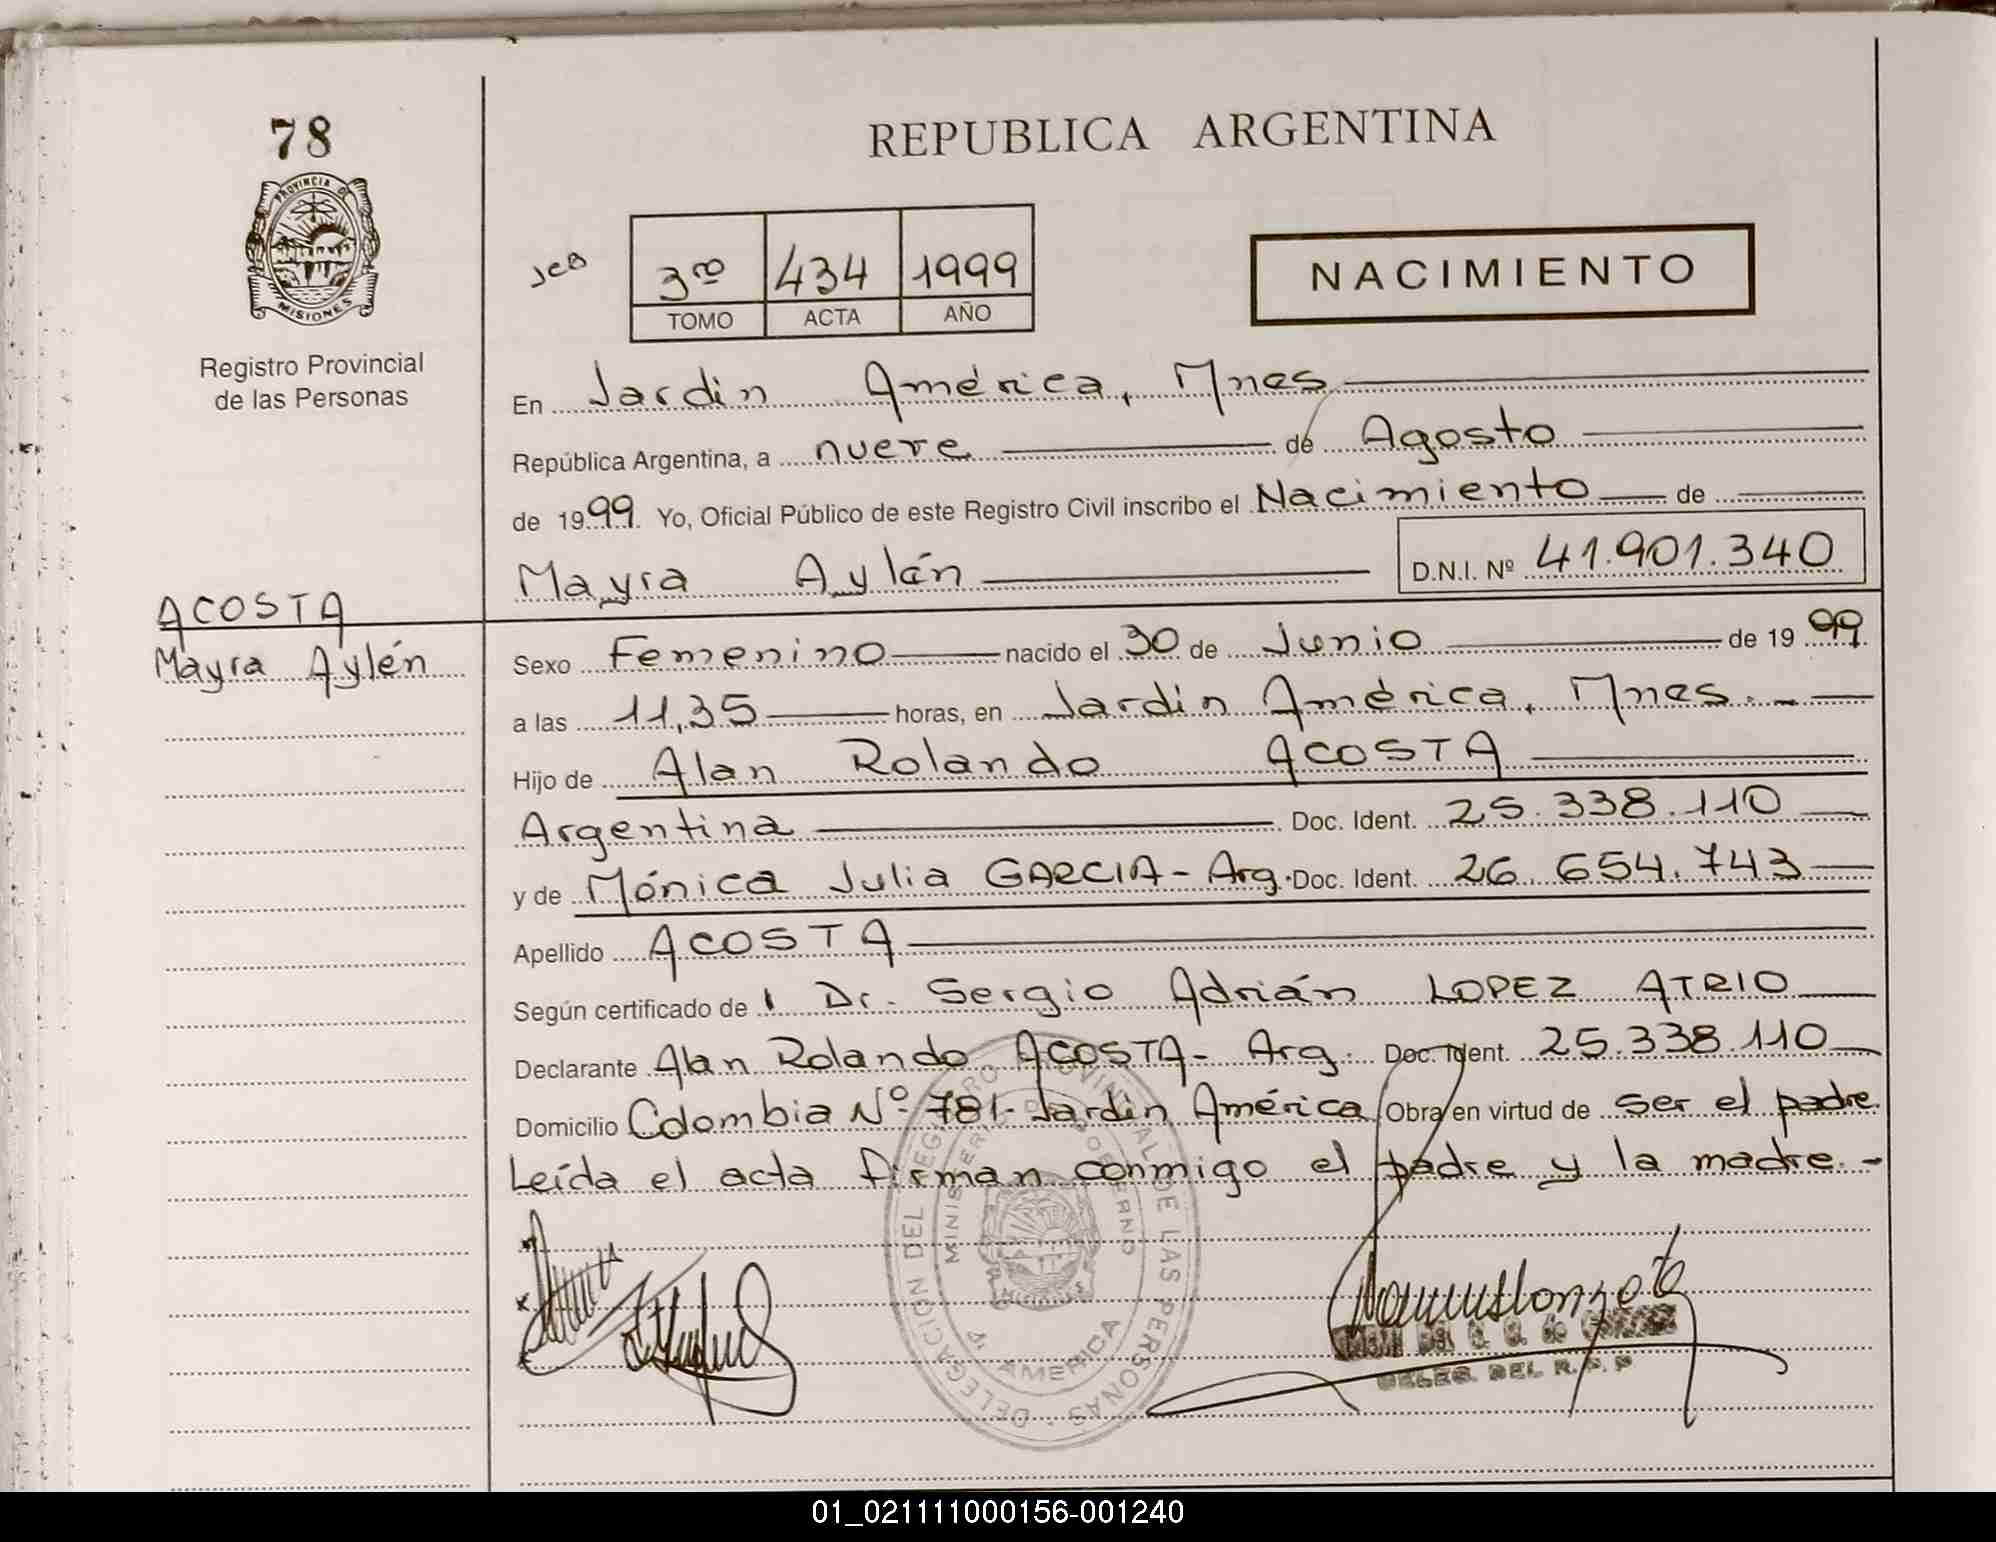 78
REPUBLICA ARGENTINA
PROVINCIA D
MISIONES
Registro Provincial
de las Personas
3ro 434 1999
TOMO ACTA AÑO
NACIMIENTO
En Jardin América, Mnes
República Argentina, a nueve de Agosto
de 1999. Yo, Oficial Público de este Registro Civil inscribo el Nacimiento de
Mayra Aylén D.N.I. Nº 41.901.340
ACOSTA
Mayra Aylén
Sexo Femenino nacido el 30 de Junio de 1999
a las 11,35 horas, en Jardin América, Mnes.-
Hijo de Alan Rolando ACOSTA
Argentina Doc. Ident. 25.338.110
y de Mónica Julia GARCIA - Arg. Doc. Ident. 26.654.743
Apellido ACOSTA
Según certificado de l Dr. Sergio Adrián LOPEZ ATRIO
Declarante Alan Rolando ACOSTA - Arg. Doc. Ident. 25.338.110
Domicilio Colombia Nº 781- Jardin América Obra en virtud de ser el padre
Leída el acta firman conmigo el padre y la madre.-
DELEGACION DEL REGISTRO PROVINCIAL DE LAS PERSONAS
MINISTERIO DE GOBIERNO
AMERICA
DELEG. DEL R. P. P
01_021111000156-001240